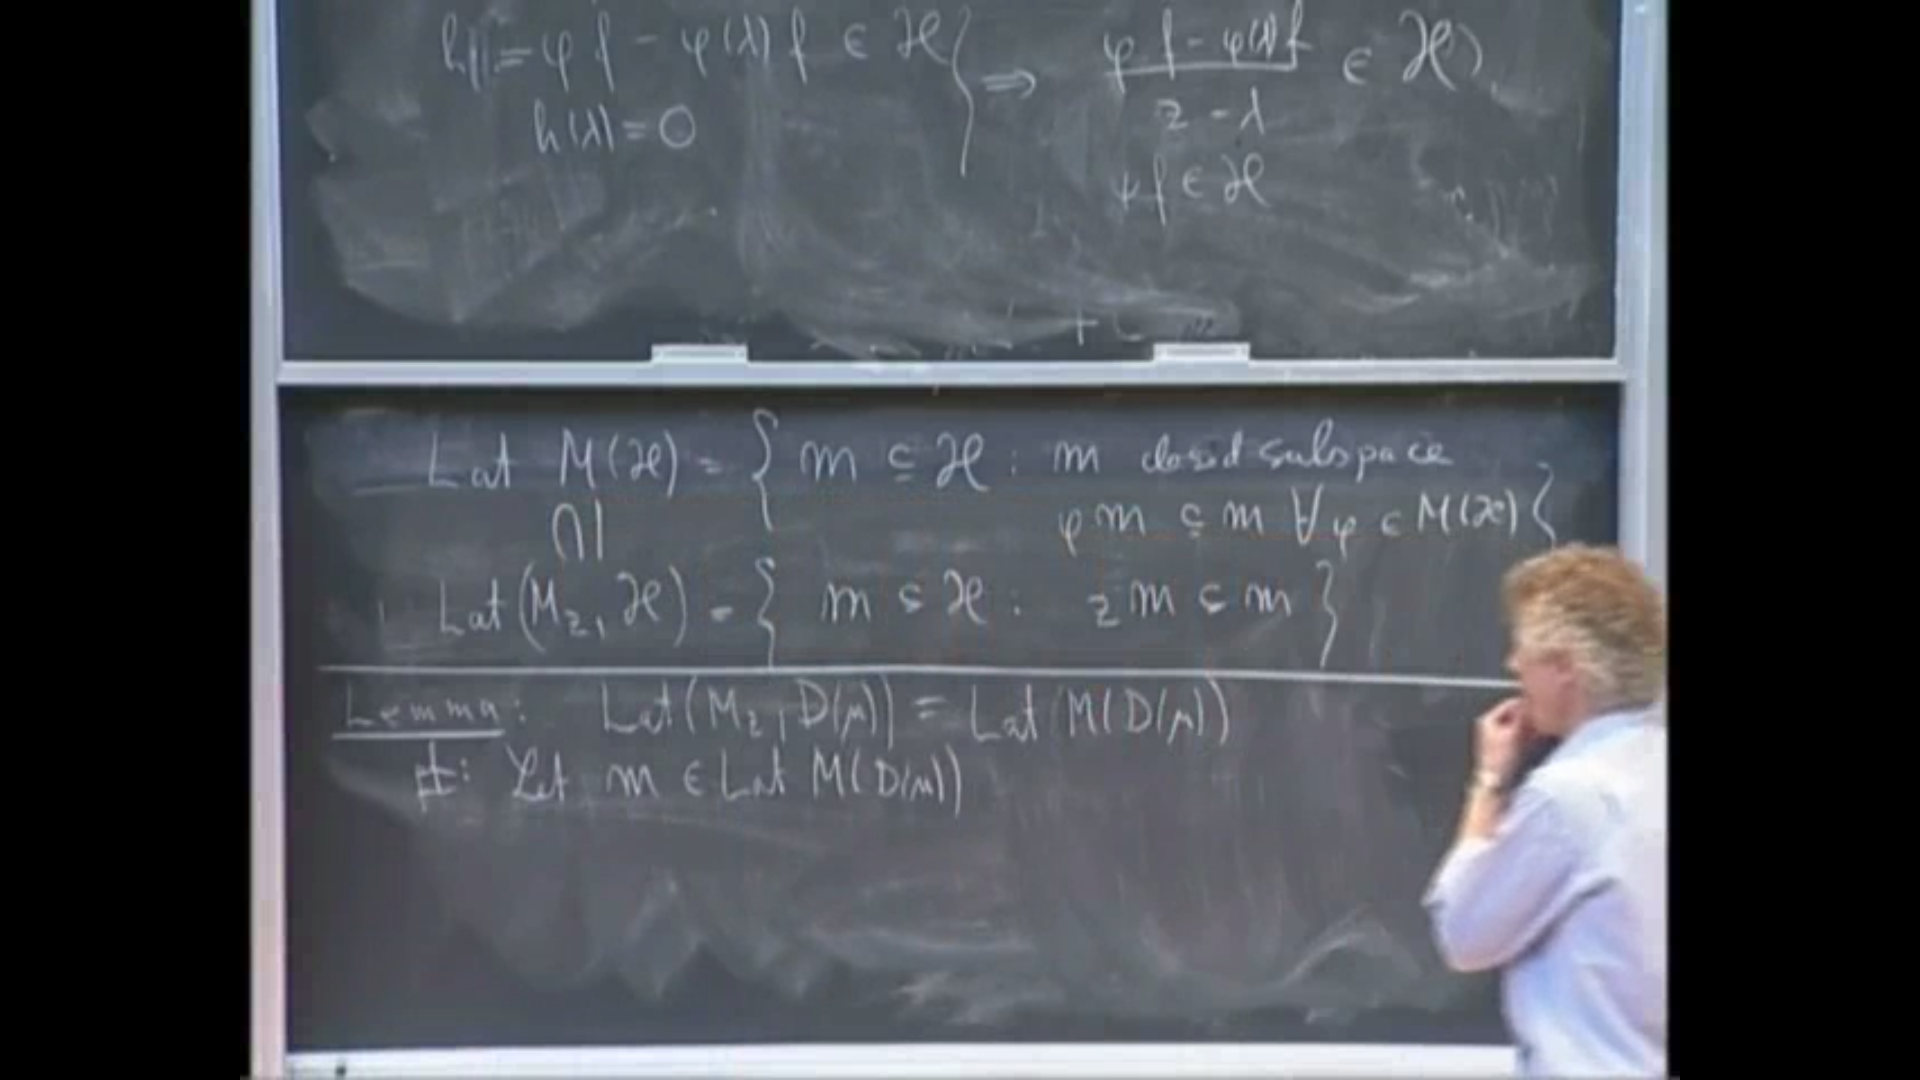 h := φ f - φ(λ) f ∈ ℋ } ⇒ (φ f - φ(λ) f) / (z - λ) ∈ ℋ ).
h(λ) = 0
ψ f ∈ ℋ
Lat M(ℋ) = { m ⊆ ℋ : m closed subspace
∩| φ m ⊆ m ∀ φ ∈ M(ℋ) }
Lat (M_z, ℋ) = { m ⊆ ℋ : z m ⊆ m }
Lemma: Lat (M_z, D(μ)) = Lat M(D(μ))
pf: Let m ∈ Lat M(D(μ))